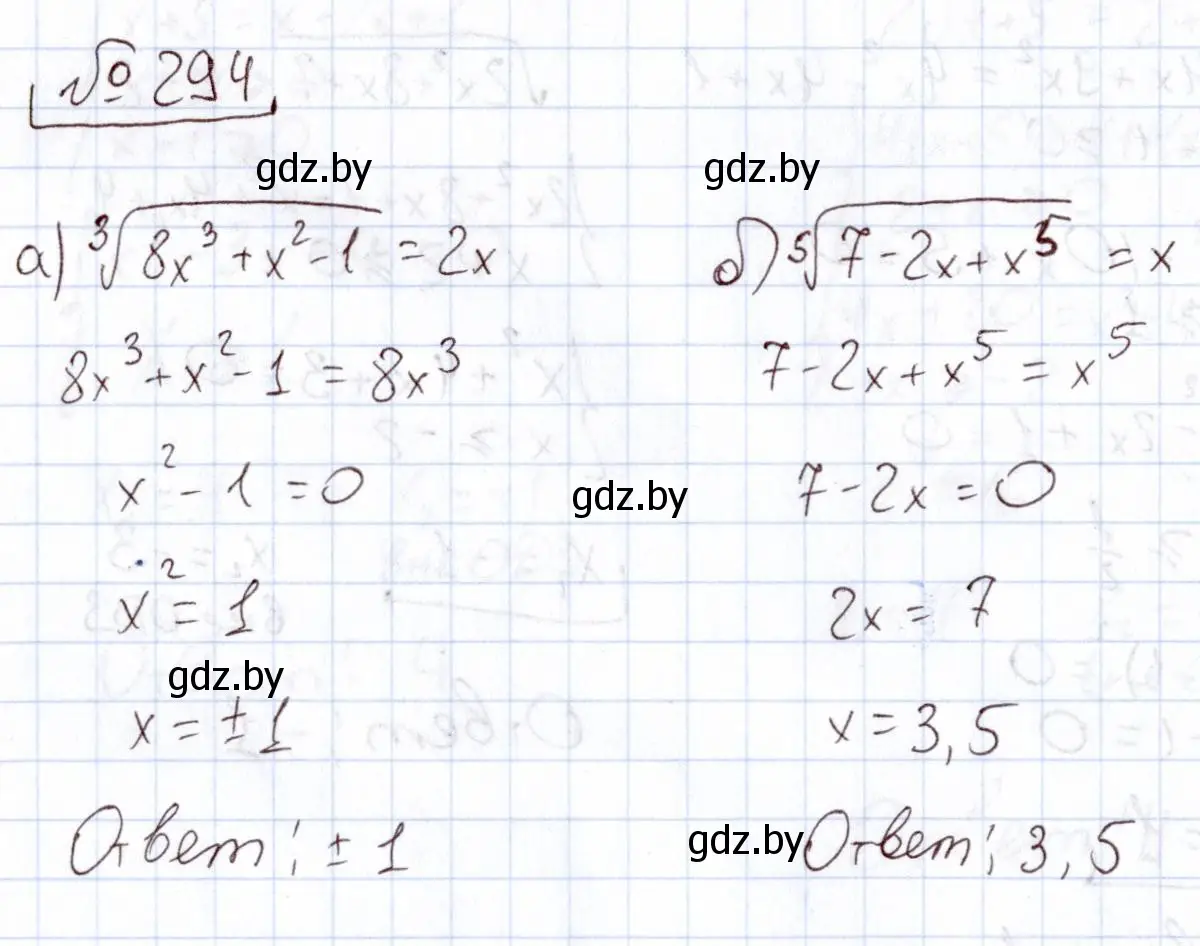 № 294
gdz.by
gdz.by
а) ∛(8x³ + x² - 1) = 2x
8x³ + x² - 1 = 8x³
x² - 1 = 0
x² = 1
gdz.by
x = ± 1
Ответ: ± 1
gdz.by
б) ⁵√(7 - 2x + x⁵) = x
7 - 2x + x⁵ = x⁵
7 - 2x = 0
2x = 7
x = 3,5
gdz.by
Ответ: 3,5